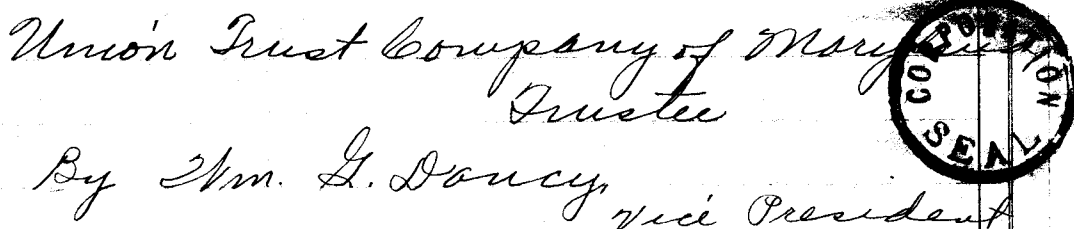 Union Trust Company of Maryland
Trustee
By Wm. G. Dancy,
Vice President
CORPORATION
SEAL